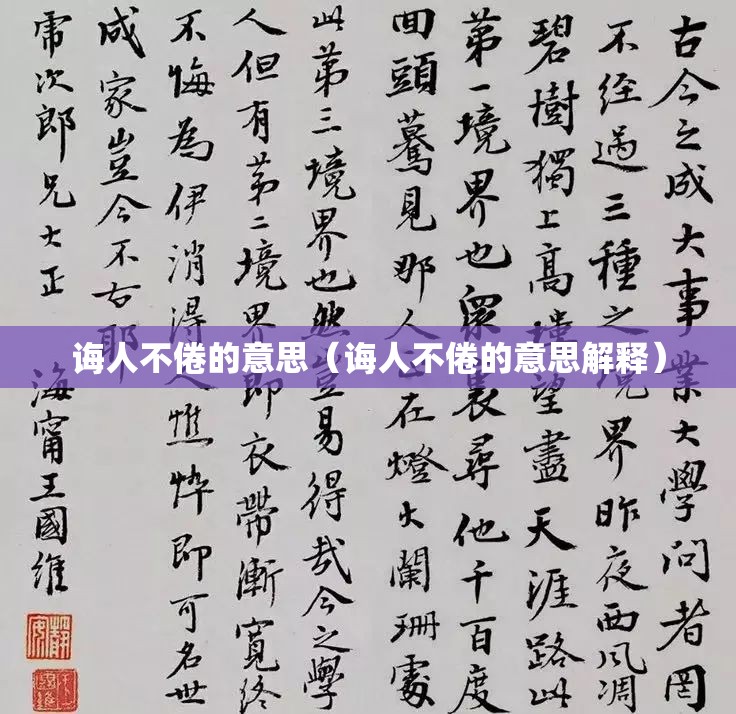 古今之成大事業大學問者罔
不經過三種之境界昨夜西风凋
碧樹獨上高樓望盡天涯路此
第一境界也眾裏尋他千百度
回頭驀見那人正在燈火闌珊處
此第三境界也然豈易得哉今之學
人但有第二境界即衣帶漸寬終
不悔為伊消得人憔悴即可名世
成家豈今不古耶
次郎兄大正
海甯王國維
靜安
诲人不倦的意思（诲人不倦的意思解释）